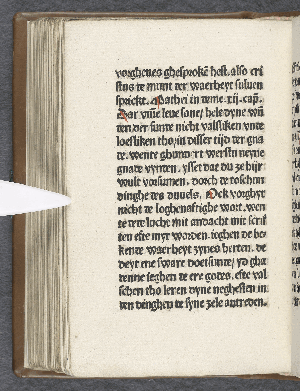 vorghenes ghesprokē hest. also cri
stus te munt ter waerheyt suluen
spricket. Mathei in teme .xij. cap̄.
Daer vm̄e leue sone / hele dyne wū
ten der sunte nicht valsliken vnte
loesliken tho / in disser tijt der gna
te. wente ghy nu
gnate vynten. ysset dat du ze hijr
wult vorsumen. dorch te
dinghe tes duuels. Ock vorghyt
nicht te loghenafftighe wort. wen
te tete lucht mit andacht mit scrif
ten efte myt worden. teghen de be
kente waerheyt zynes herten. de
deyt ene sware doetsunte / yd gha
tenne seghen te ere godes. efte val
schen tho leren dyne neghesten in
ten dinghen te syne zele antreden.